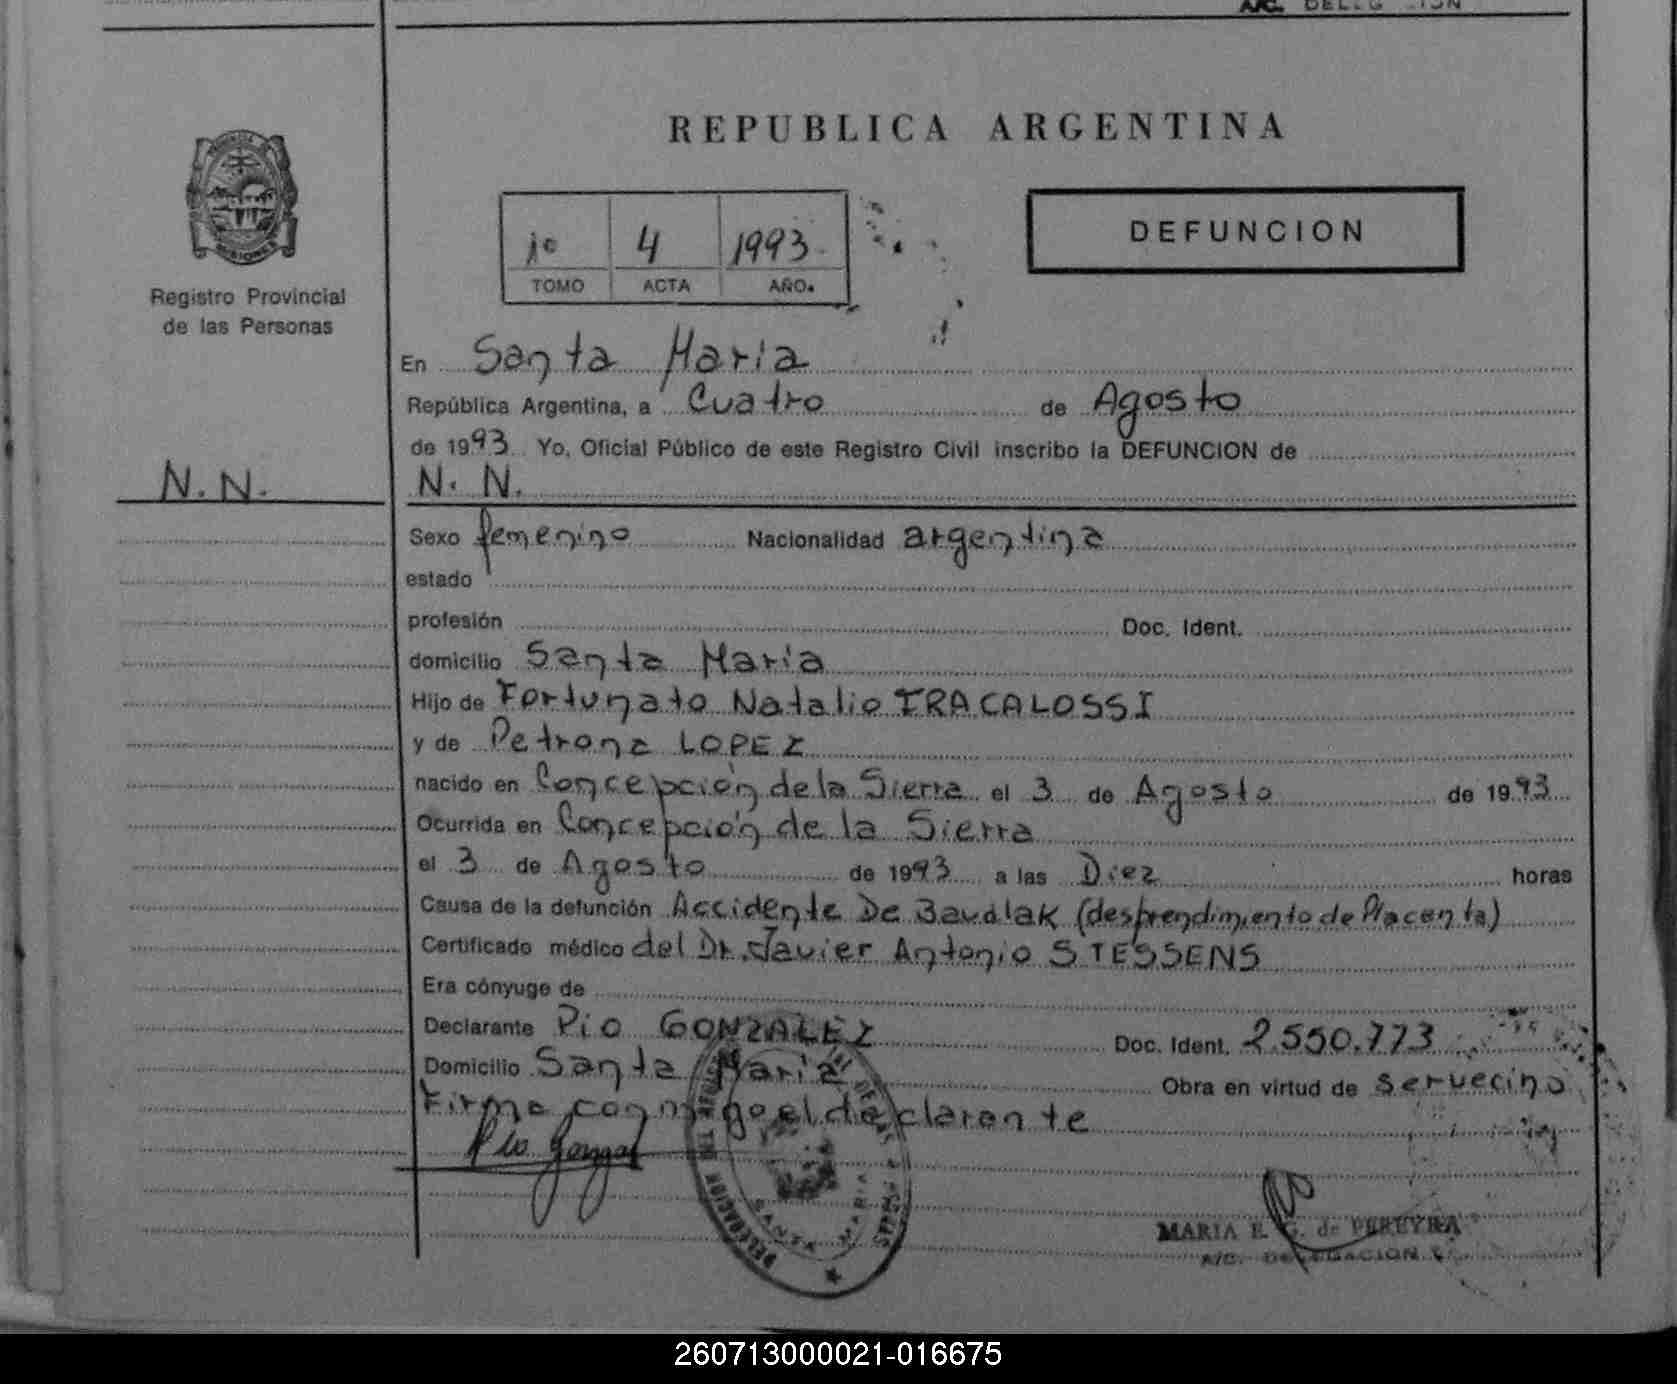 REPUBLICA ARGENTINA
MISIONES
Registro Provincial
de las Personas
1º 4 1993
TOMO ACTA AÑO.
DEFUNCION
En Santa Maria
República Argentina, a Cuatro de Agosto
de 1993. Yo, Oficial Público de este Registro Civil inscribo la DEFUNCION de
N.N.
N. N.
Sexo femenino Nacionalidad argentina
estado
profesión Doc. Ident.
domicilio Santa Maria
Hijo de Fortunato Natalio TRACALOSSI
y de Petrona LOPEZ
nacido en Concepción de la Sierra el 3 de Agosto de 1993
Ocurrida en Concepción de la Sierra
el 3 de Agosto de 1993 a las Diez horas
Causa de la defunción Accidente De Baudlak (desprendimiento de Placenta)
Certificado médico del Dr. Javier Antonio STESSENS
Era cónyuge de
Declarante Pio GONZALEZ Doc. Ident. 2.550.773
Domicilio Santa Maria Obra en virtud de ser vecino
Firma conmigo el declarante
Pio
DELEGACION DEL REGISTRO DE LAS PERSONAS
SANTA MARIA
MARIA E. G. de PEREYRA
A/C. DELEGACION
260713000021-016675